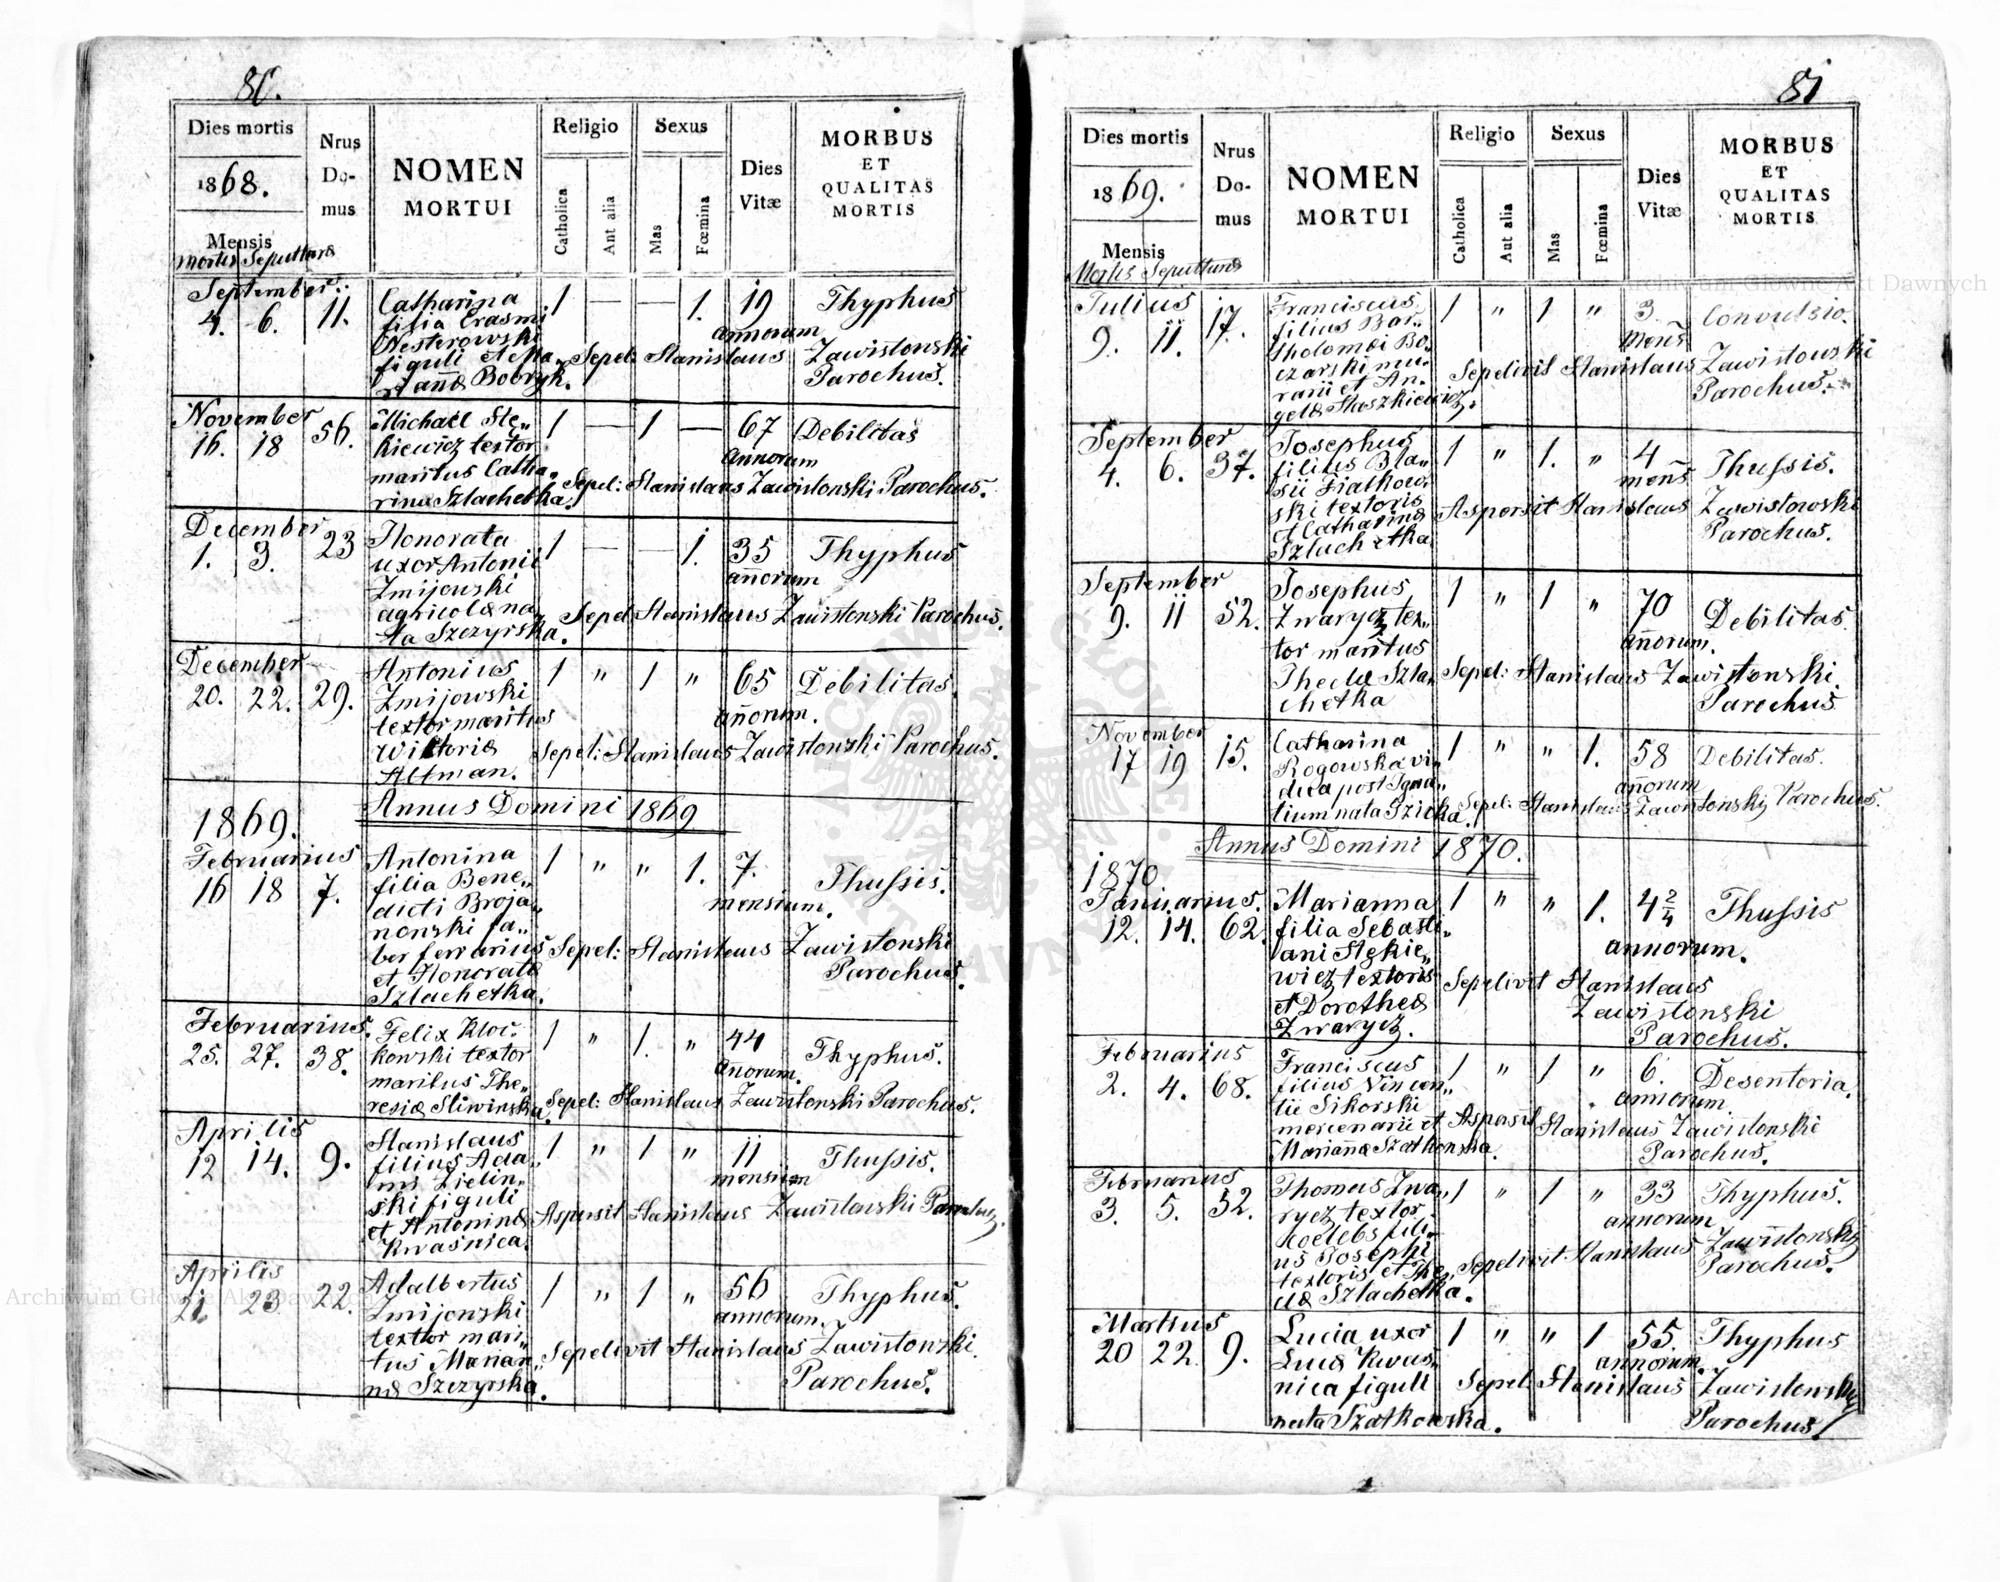 80.
Dies mortis
1868.
Mensis
Mortis Sepulturæ
Nrus Do- mus
NOMEN
MORTUI
Religio
Catholica
Aut alia
Sexus
Mas
Fœmina
Dies Vitæ
MORBUS
ET
QUALITAS
MORTIS
September
4. 6. 11. Catharina 1 — — 1. 19 Thyphus
filia Erasmi annorum
Nesterowski
figuli et Ma- Sepel: Stanislaus Zawistonski
Bobryk. Parochus.
November
16. 18 56. Michael Ste„ 1 — 1 — 67 Debilitas
kiewicz textor annorum
maritus Catha„
rinæ Szlachetka. Sepel: Stanislaus Zawistonski Parochus.
December
1. 3. 23 Honorata 1 — — 1. 35 Thyphus
uxor Antonii annorum
Zmijowski
agricolæ na„ Sepel Stanislaus Zawistonski Parochus.
ta Szczyrska.
December
20. 22. 29. Antonius 1 „ 1 „ 65 Debilitas.
Zmijowski annorum.
textor maritus
Wiktoriæ Sepel: Stanislaus Zawistonski Parochus.
Altman.
1869. Annus Domini 1869
Februarius
16 18 7. Antonina 1 „ „ 1. 7. Thussis.
filia Bene„ mensium.
dicti Broja„
nonski fa„
ber ferrarius Sepel: Stanislaus Zawistonski
et Honoratæ Parochus.
Szlachetka.
Februarius.
25. 27. 38. Felix Kloc„ 1 „ 1. „ 44 Thyphus.
kowski textor anorum.
maritus The„
resiæ Sliwinska. Sepel: Stanislaus Zawistonski Parochus.
Aprilis
12 14. 9. Stanislaus 1 „ 1 „ 11 Thussis.
filius Ada„ mensium
mi Zielin„
ski figuli
et Antoninæ Aspersit Stanislaus Zawistonski Parochus.
Kwaśnica.
Aprilis
21. 23 22. Adalbertus 1 „ 1 „ 56 Thyphus.
Zmijonski annorum.
textor mari„
tus Marian„ Sepelivit Stanislaus Zawistonski.
næ Szczyrska. Parochus.
81
Dies mortis
1869.
Mensis
Mortis Sepulturæ
Nrus Do- mus
NOMEN
MORTUI
Religio
Catholica
Aut alia
Sexus
Mas
Fœmina
Dies Vitæ
MORBUS
ET
QUALITAS
MORTIS
Julius
9. 11. 17. Franciscus 1 „ 1 „ 3 Convulsio.
filius Bar„ mens
tholomæi Bo„
czarski mu„ Sepelivit Stanislaus Zawistouski
rarii et An„ Parochus.
gelæ Staszkiewicz.
September
4. 6. 37. Josephus 1 „ 1. „ 4 Thussis.
filius Bla„ mens
sii Fiatkow„
ski textoris Aspersit Stanislaus Zawistowski
et Catharinæ Parochus.
Szlachetka
September
9. 11 52. Josephus 1 „ 1 „ 70 Debilitas.
Zwarycz tex„ annorum.
tor maritus
Theclæ Szla„ Sepel: Stanislaus Zawistonski.
chetka Parochus
November
17 19 15. Catharina 1 „ „ 1. 58 Debilitas.
Rogowska vi„ annorum
dua post Igna„
tium nata Szicka. Sepel: Stanislaus Zawistonski Parochus.
Annus Domini 1870.
1870
Januarius.
12. 14. 62. Marianna 1 „ „ 1. 4 2/4 Thussis
filia Sebasti„ annorum.
ani Stękie„
wicz textoris Sepelivit Stanislaus
et Dorotheæ Zawistonski
Zwarycz. Parochus.
Februarius
2. 4. 68. Franciscus 1 „ 1 „ 6. Desentoria.
filius Vincen„ annorum
tii Sikorski
mercenarii et Aspersit Stanislaus Zawistonski
Mariannæ Szatkowska. Parochus.
Februarius
3. 5. 52. Thomas Zwa„ 1 „ 1 „ 33 Thyphus.
rycz textor annorum
Coelebs fili„
us Josephi Sepelivit Stanislaus Zawistonski
textoris et The„ Parochus.
clæ Szlachetka.
Martius
20 22. 9. Lucia uxor 1 „ „ 1 55. Thyphus
Lucæ Kwas„ annorum.
nica figuli Sepel: Stanislaus Zawistowski
nata Szatkowska. Parochus
Archiwum Główne Akt Dawnych
Archiwum Główne Akt Dawnych
ARCHIWUM GŁÓWNE AKT DAWNYCH